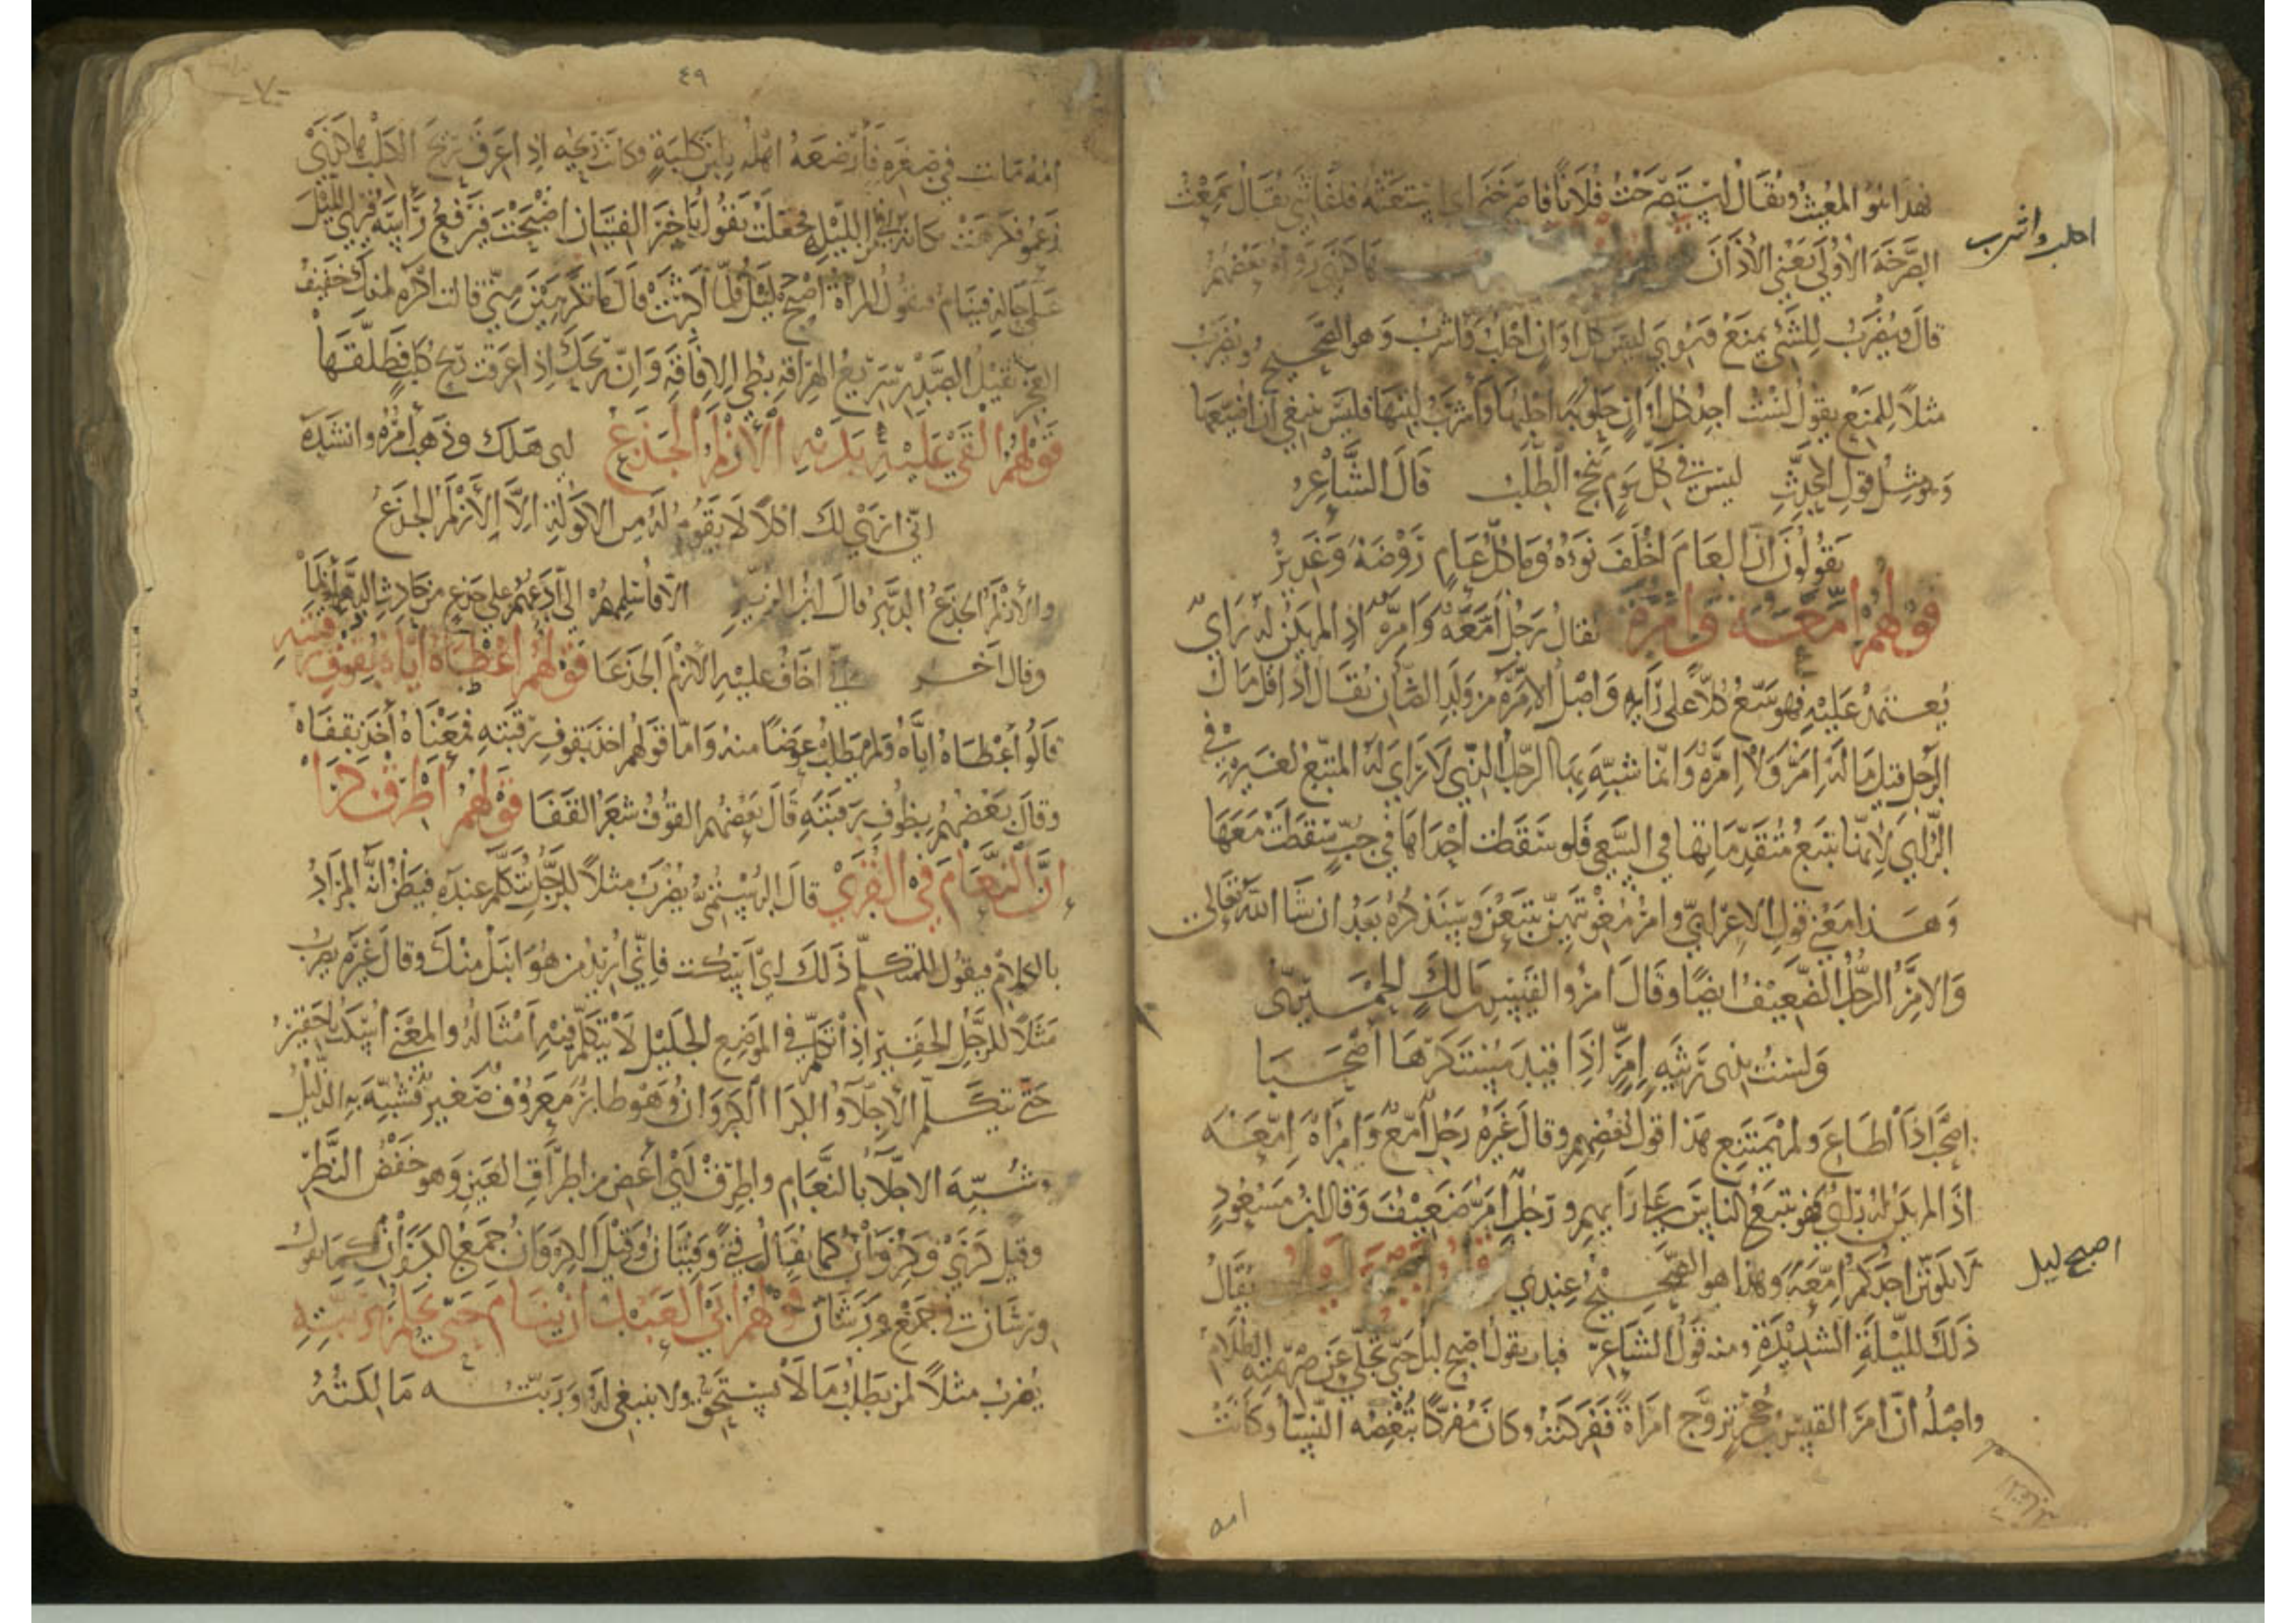 فهذا هو المغيث ويقال استصرخت فلانا فاصرخني اي استغثته فاغاثني يقال سمعت
الصرخة الاولى يعني الاذان
احلب واشرب
قال يضرب للشئ يمنع ويروى ليس كل اوان احلب فاشرب وهو الصحيح ويضرب
مثلا للمنع يقول لست اجد كل اوان حلوبة احلبها واشرب لبنها فليس ينبغي ان اضيعها
وهو مثل قول المحدث ليس في كل يوم ينجح الطلب قال الشاعر
يقولون ان العام اخلف نوءه وما كل عام روضة وغدير
قولهم امعة وامرة يقال رجل امعة وامرة اذا لم يكن له راي
يعتمد عليه فهو يتبع كلا على رايه واصل الامرة من ولد الضان يقال اذا قل مال
الرجل قيل ما له امر ولا امرة وانما شبه بها الرجل الذي لا راي له المتبع لغيره في
الراي لانها تتبع متقدماتها في السعي فلو سقطت احداها في جب سقطت معها
وهذا معنى قول الاعرابي وامر مغويتهن يتبعن وسنذكره بعد ان شا الله تعالى
والامر الرجل الضعيف ايضا وقال امرؤ القيس بن مالك الحميري
ولست بذي رثية امر اذا قيد مستكرها اصحبا
اصحب اذا اطاع ولم يمتنع هذا قول بعضهم وقال غيره رجل امع وامراة امعة
اذا لم يكن له راي فهو يتبع الناس على رايهم ورجل امر ضعيف وقال ابن مسعود
لا يكونن احدكم امعة وهذا هو الصحيح عندي قولهم اصبح ليل يقال
اصبح ليل
ذلك لليلة الشديدة ومنه قول الشاعر فبات يقول اصبح ليل حتى تجلى عن صريمته الظلام
واصله ان امرا القيس بن حجر تزوج امراة ففركته وكان مفركا تبغضه النسا وكانت
امه
٤٩
٧٠
امه ماتت في صغره فارضعه اهله بلبن كلبة وكانت ريحه اذا عرق ريح الكلب
زعموا فكرهت مكانه في الليل فجعلت تقول يا خير الفتيان اصبحت فيرفع راسه فيرى الليل
على حاله فينام فتقول المراة اصبح ليل فلما اكثرت قال ما تكرهين مني قالت اكره منك خفيف
العجز ثقيل الصدر سريع الهراقة بطي الافاقة وان ريحك اذا عرقت ريح كلب فطلقها
قولهم القي عليه بدنه الازلم الجذع اي هلك وذهب امره وانشد
اني ارى لك اكلا لا يقوم له من الاكولة الا الازلم الجذع
والازلم الجذع الدهر قال ابن الزبير
وقال اخر اني اخاف عليه الازلم الجذعا قولهم اعطاه اياه بقوف رقبته
قالوا اعطاه اياه ولم يطلب عوضا منه واما قولهم اخذ بقوف رقبته فمعناه اخذ بقفاه
وقال بعضهم بظوف رقبته قال بعضهم القوف شعر القفا قولهم اطرق كرا
ان النعام في القرى قال الرستمي يضرب مثلا للرجل يتكلم عنده فيظن انه المراد
بالكلام فيقول المتكلم ذلك اي اسكت فاني اريد من هو انبل منك وقال غيره يضرب
مثلا للرجل الحقير اذا تكلم في الموضع الجليل لا يتكلم فيه امثاله والمعنى اسكت يا حقير
حتى يتكلم الاجلاء والكرا الكروان وهو طائر معروف صغير فشبه به الذليل
وشبه الاجلا بالنعام واطرق اي اغض من اطراق العين وهو خفض النظر
وقيل كرى وكروان كما يقال فتى وفتيان وقيل الكروان جمع الكروان كما يقول
ورشان في جمع ورشان قولهم ابى العبد ان ينام حتى يحلم بربته
يضرب مثلا لمن يطلب ما لا يستحق ولا ينبغي له وربته مالكته